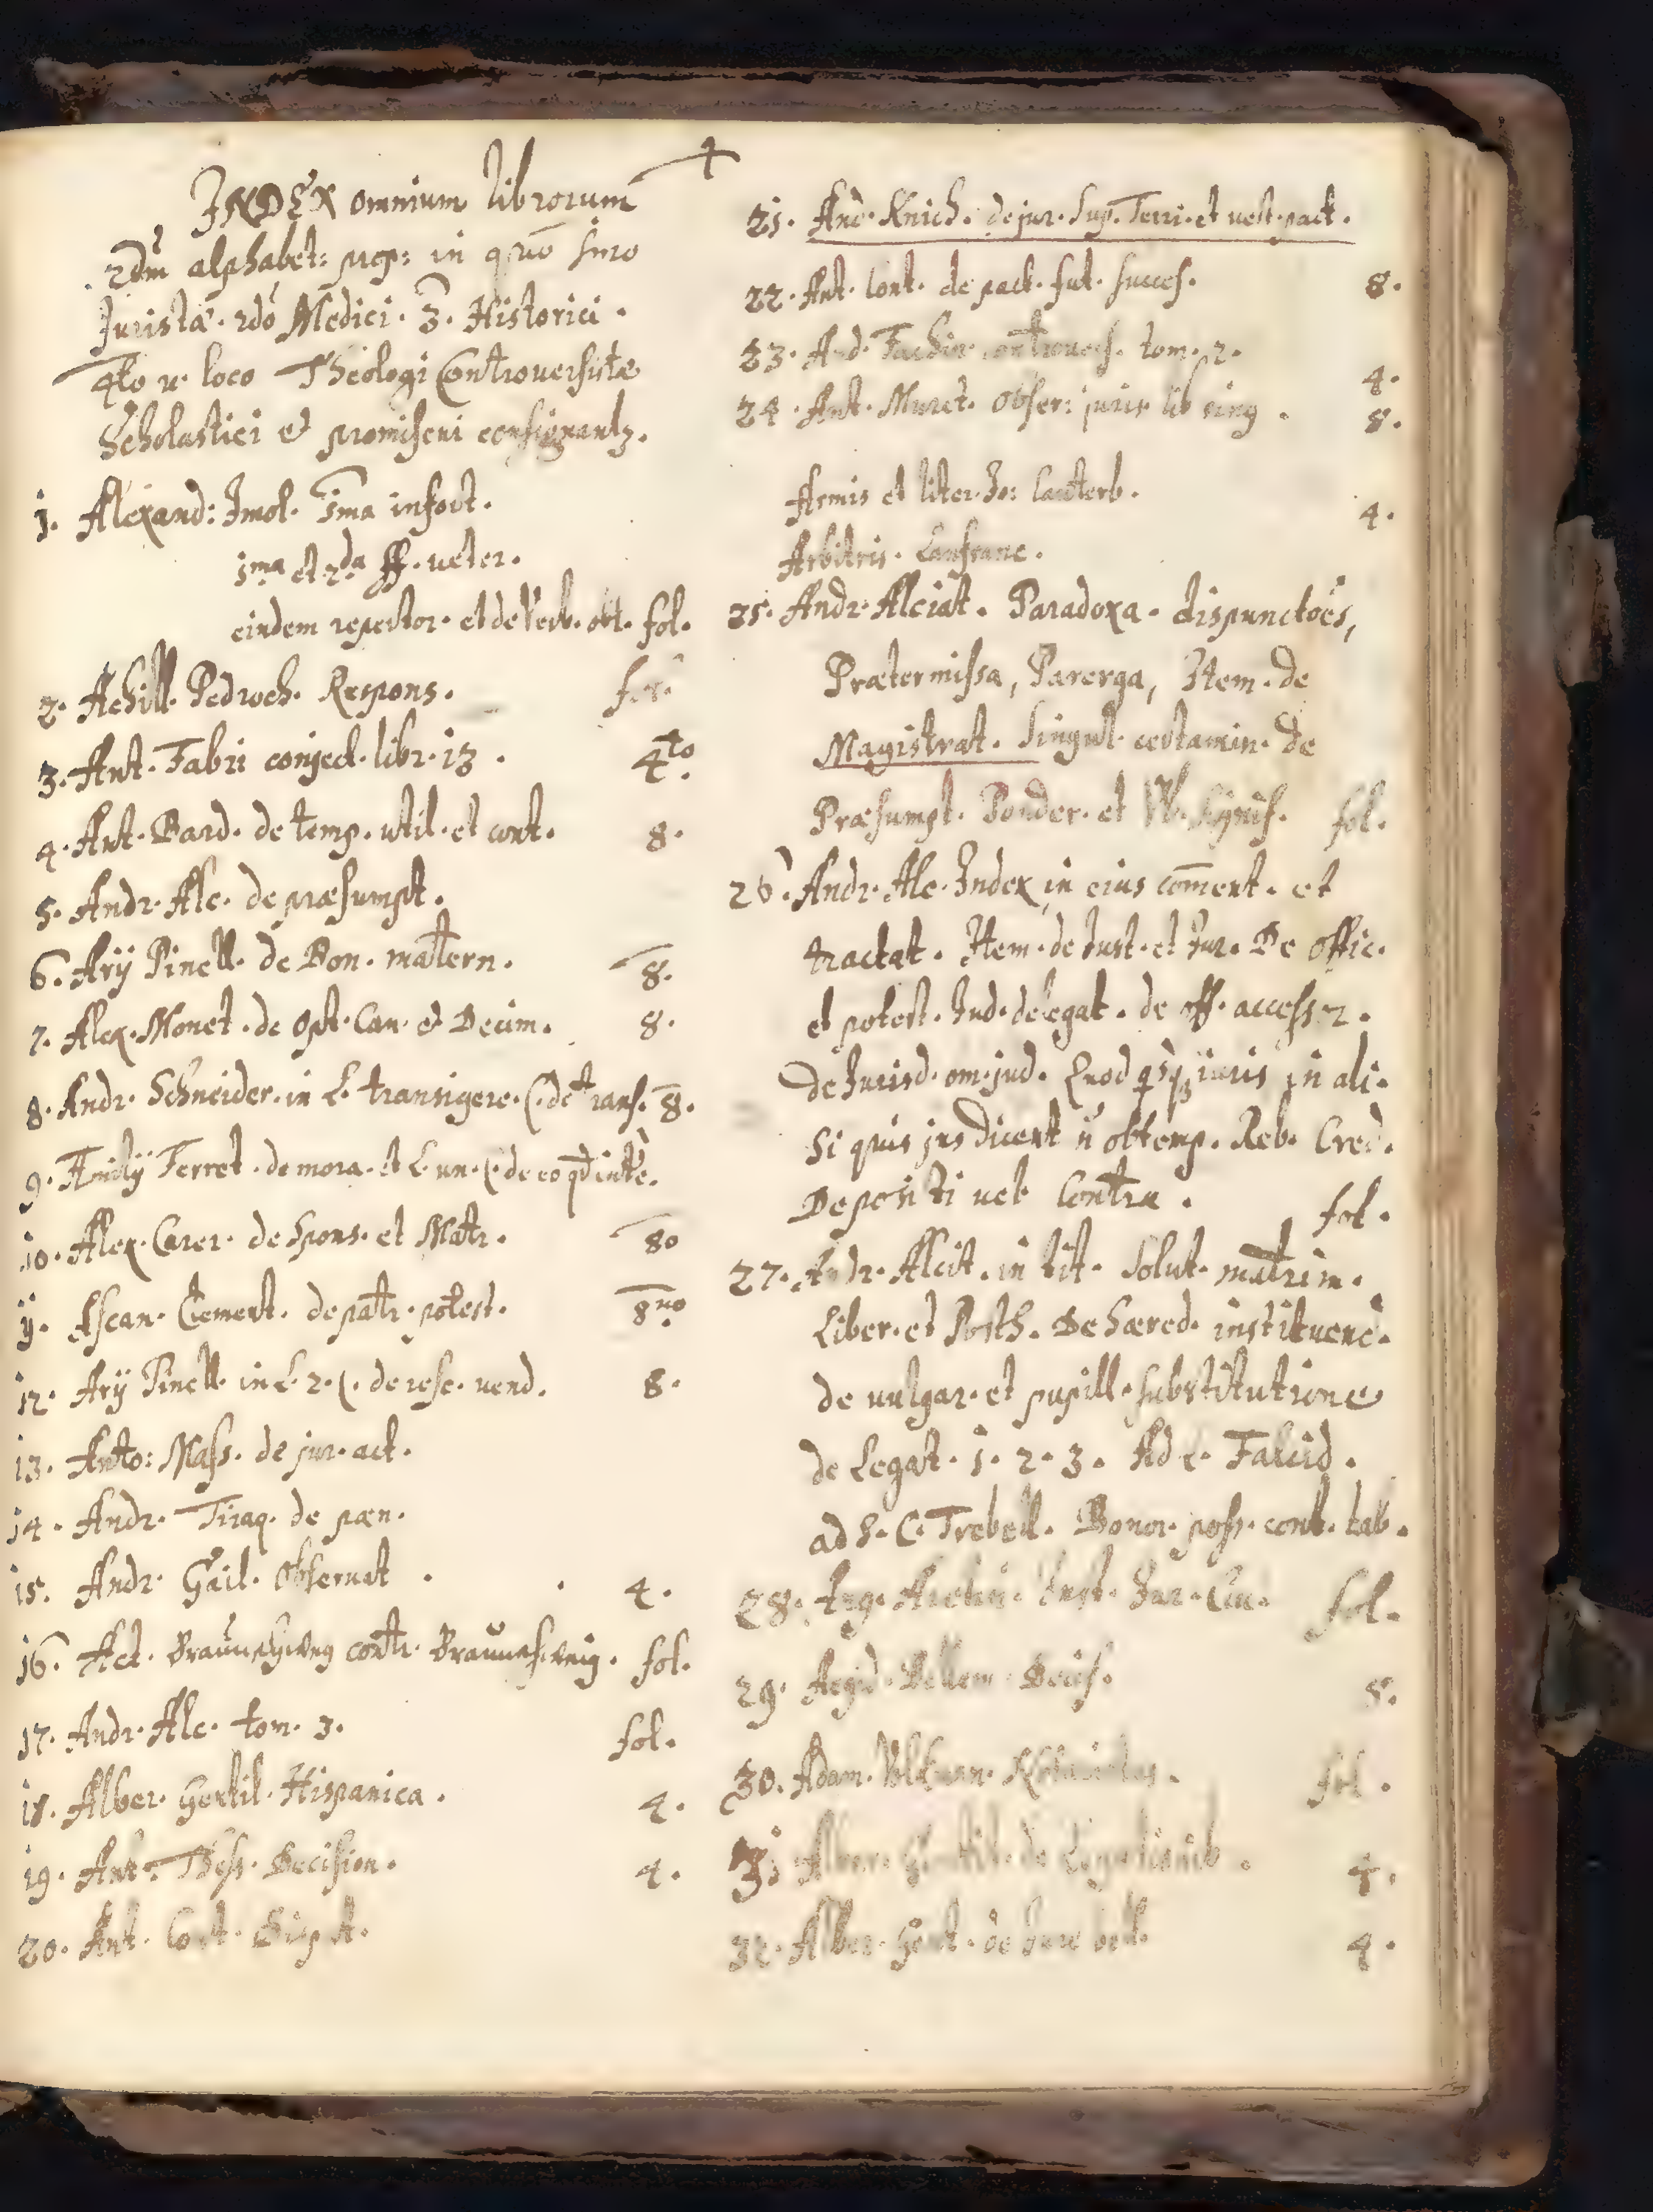 4
INDEX omnium librorum
2dm alphabet: in quo
Juristæ. 2do Medici. 3. Historici.
4to v. loco Theologi Controversistæ
Scholastici et promiscui consignantz.
1. Alexand: Imol. 1ma infort.
1ma et 2da ff. veter.
eiudem repertor. et de Verb. obl. fol.
2. Achill. Pedroch. Respons. fol.
3. Ant. Fabri conject. libr. 13. 4to.
4. Ant. Bard. de temp. util. et cont. 8.
5. Andr. Alc. de præsumpt.
6. Arij Pinell. de Bon. matern. 8.
7. Alex. Monet. de opt. Can. et Decim. 8.
8. Andr. Schneider. in L. transigere. C. de trans. 8.
9. Ferret. de mora. et L. un. C. de eo
10. Alex. Carer. de Spons. et Matr. 8o
11. Ascan. Clement. de patr. potest. 8uo.
12. Arij Pinell. in L. 2. C. de resc. vend. 8.
13. Anto: Mass. de jur. act.
14. Andr. Tiraq. de pæn.
15. Andr. Gail. Observat. 4.
16. Act. Braunschweig contr. Braunschweig. fol.
17. Andr. Alc. tom. 3. fol.
18. Alber. Gentil. Hispanica. 4.
19. Ant. Thess. Decision. 4.
20. Ant. Cont. Disput.
21. And. Knich. de jur. Sup. Terri. et vest. pact.
22. Ant. Cont. de pact. fut. succes. 8.
23. And. Fachin. controvers. tom. 2. 4.
24. Ant. Muret. Obser: juris lib sing. 8.
Armis et liter. Jo: Lauterb. 4.
Arbitris. Lanfranc.
25. Andr. Alciat. Paradoxa. dispunctoēs,
Prætermissa, Parerga, Item. de
Magistrat. Singul. certamin. de
Præsumpt. Ponder. et fol.
26. Andr. Alc. Index in eius coment. et
tractat. Item. de Just. et Jur. De offic.
et potest. Jud. delegat. de off.
de Jurisd. om. jud. Quod juris in ali.
Si quis jus dicent n obtemp. Reb. Cred.
Depositi vel Contra. fol.
27. Andr. Alcit. in tit. Solut. matrim.
Liber. et Posth. De hæred. instituend.
de vulgar. et pupill. substitutione
de Legat. 1. 2. 3. Ad L. Falcid.
ad S. C. Trebell. Bonor. poss. cont. tab.
28. Ang. Aretin. Inst. Jur. Civ. fol.
29. Aegid. Bellem. Decis. 8.
30. Adam. Volkman. fol.
31 Alber. Gentil. de Legationib. 4.
32. Alber. Gent. de Jure bell. 4.